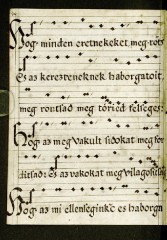 Hog minden eretnekeket meg ront
És az kereszteneknek haborgatoit
meg rontsad meg töried felséges:
Hog az meg vakult sidokat meg for
ditsad: és az vakokat meg vilagositsad
Hog az mi ellenseginkc es haborgn